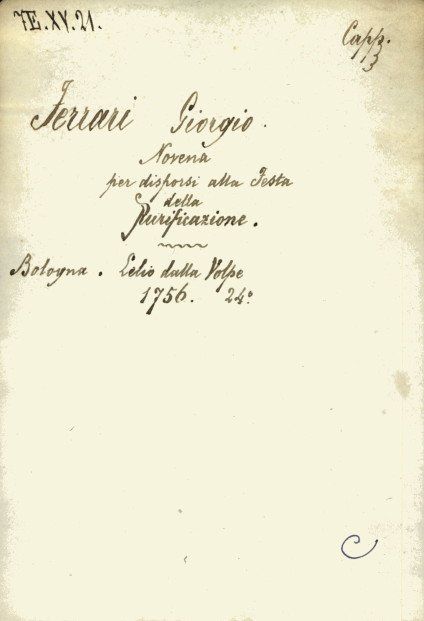 7E.XV.21.
Capp.
13
Ferrari Giorgio.
Novena
per disporsi alla Festa
della
Purificazione.
Bologna. Lelio dalla Volpe
1756. 24°
C